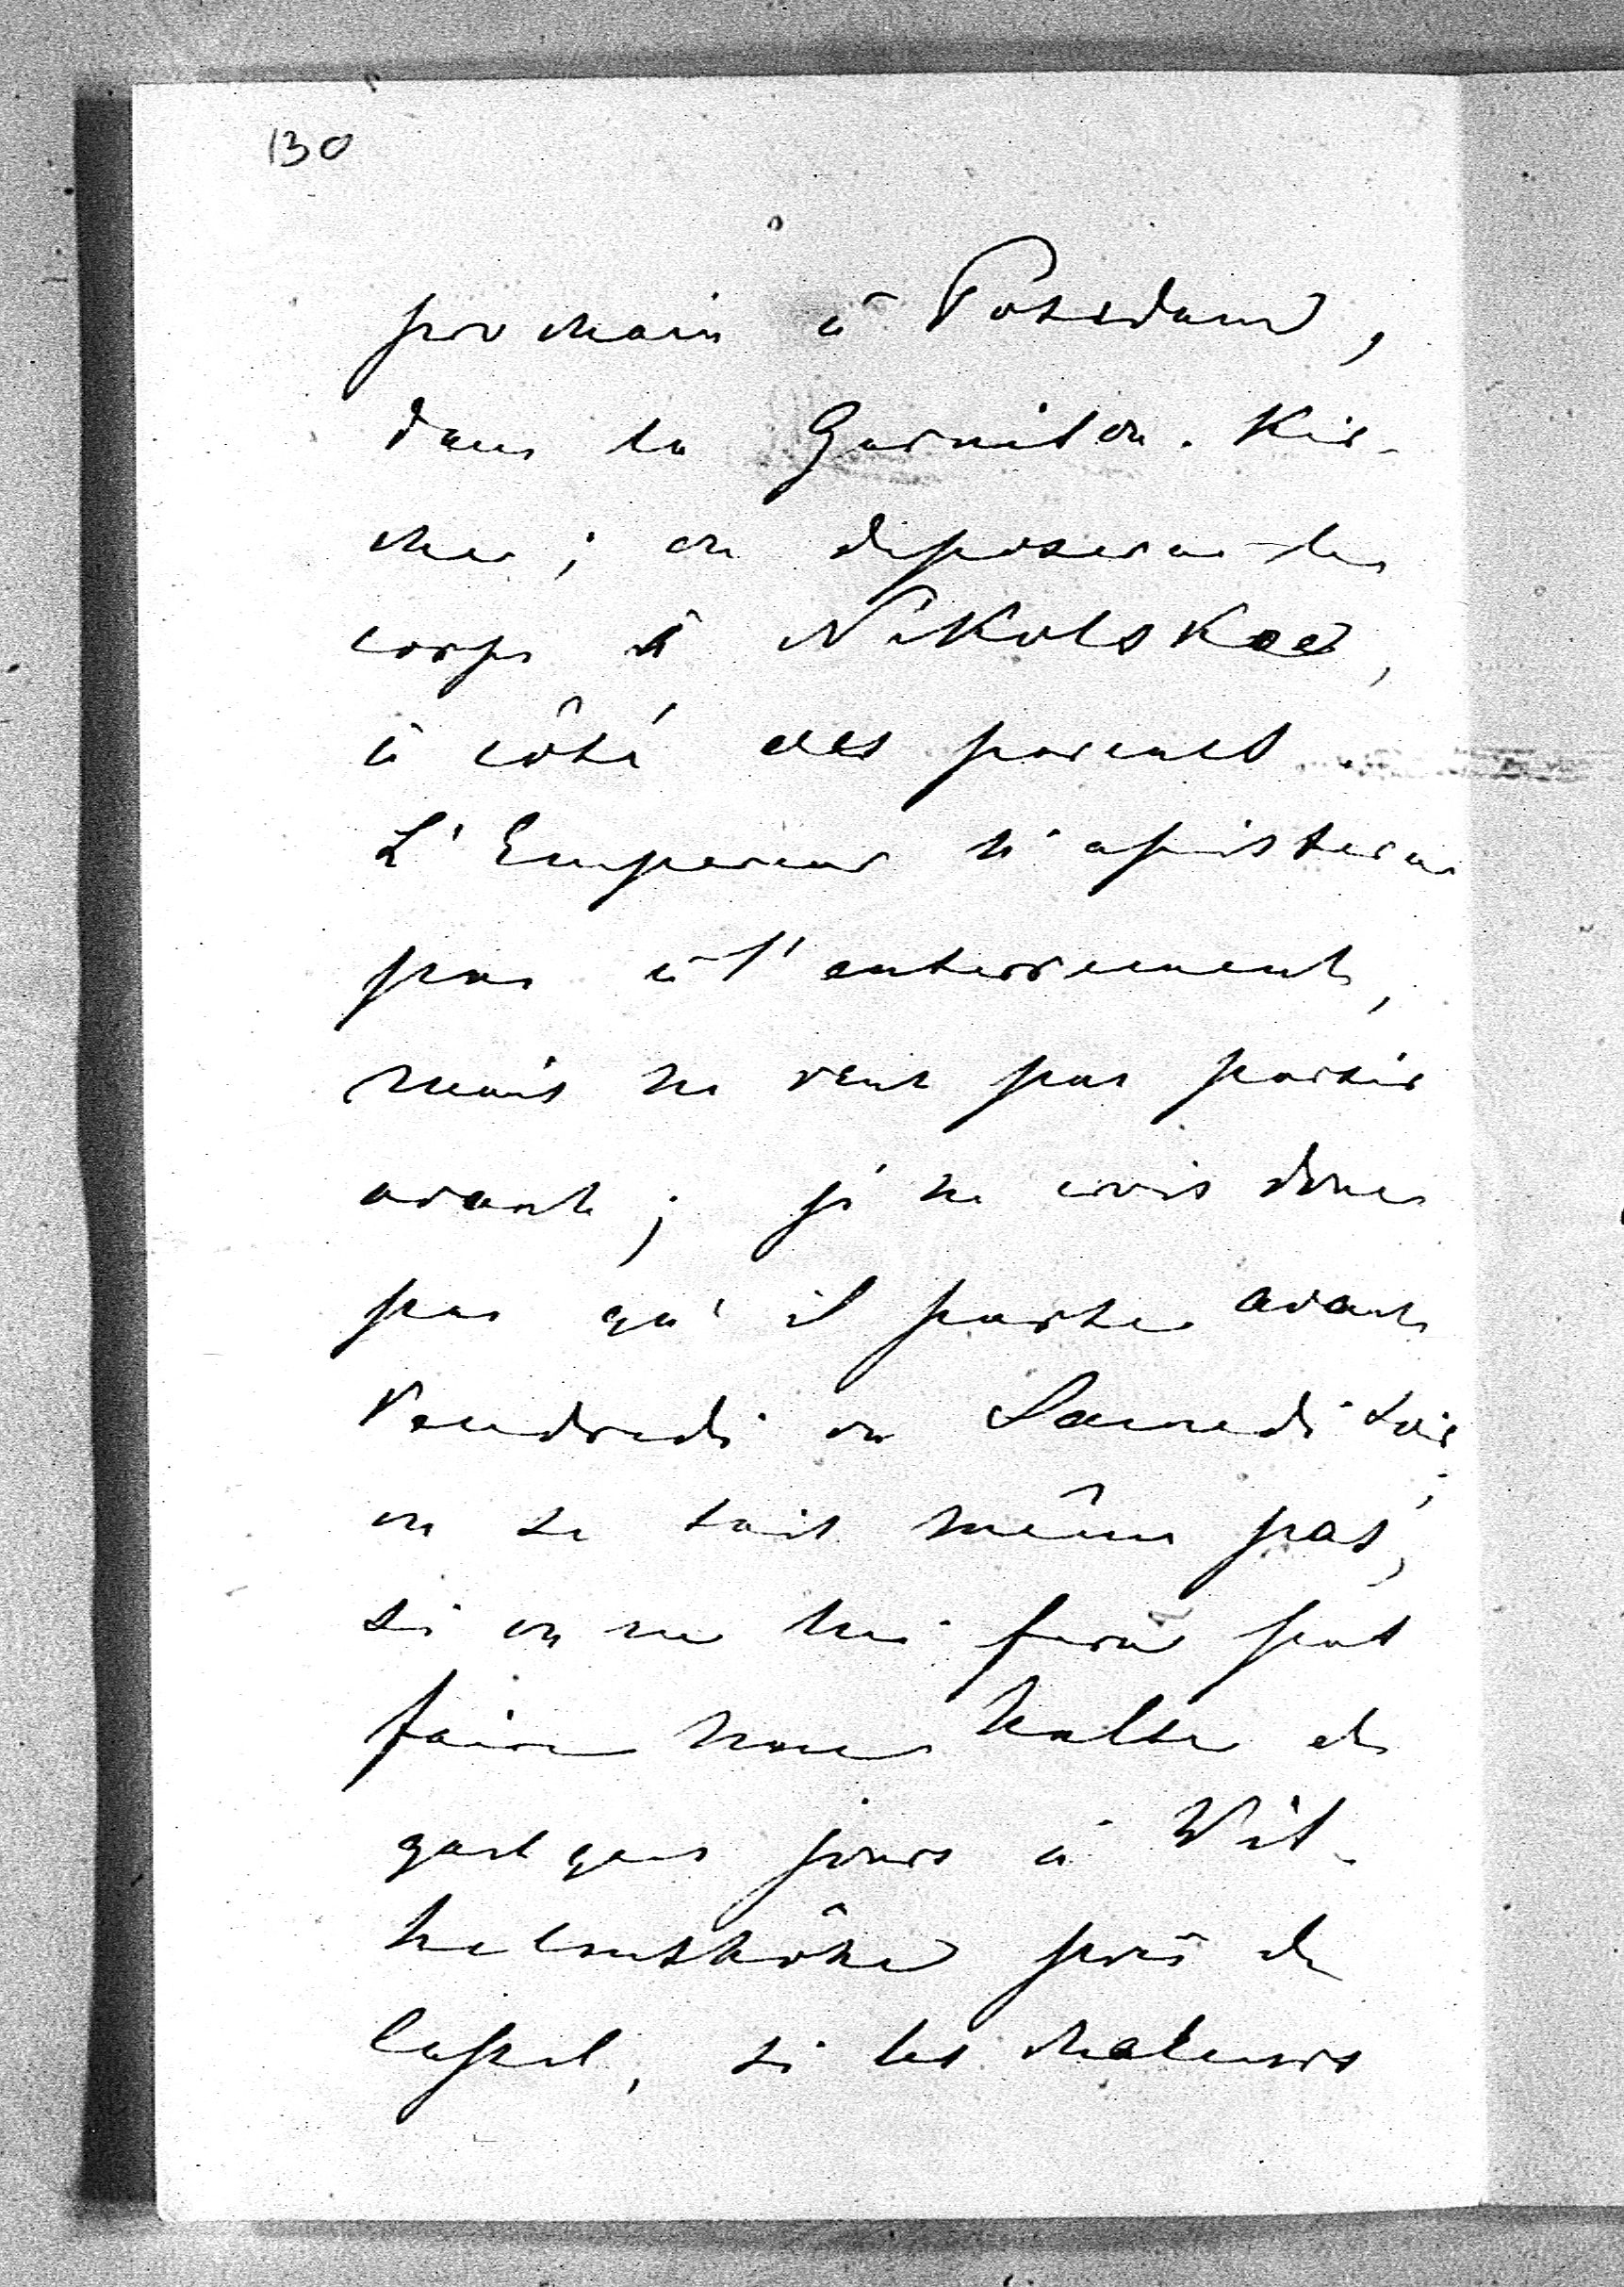 130
prochain à Potsdam,
dans la Garnison-Kir-
che; on déposera le
corps à Nikolskoe,
à côté des parents.
L'Empereur n'assistera
pas à l'enterrement,
mais ne veut pas partir
avant; je ne crois donc
pas qu'il parte avant
Vendredi ou Samedi soir;
on ne sait même pas,
si on ne lui fera pas
faire une halte de
quelques jours à Wil-
helmshöhe près de
Cassel, si les chaleurs